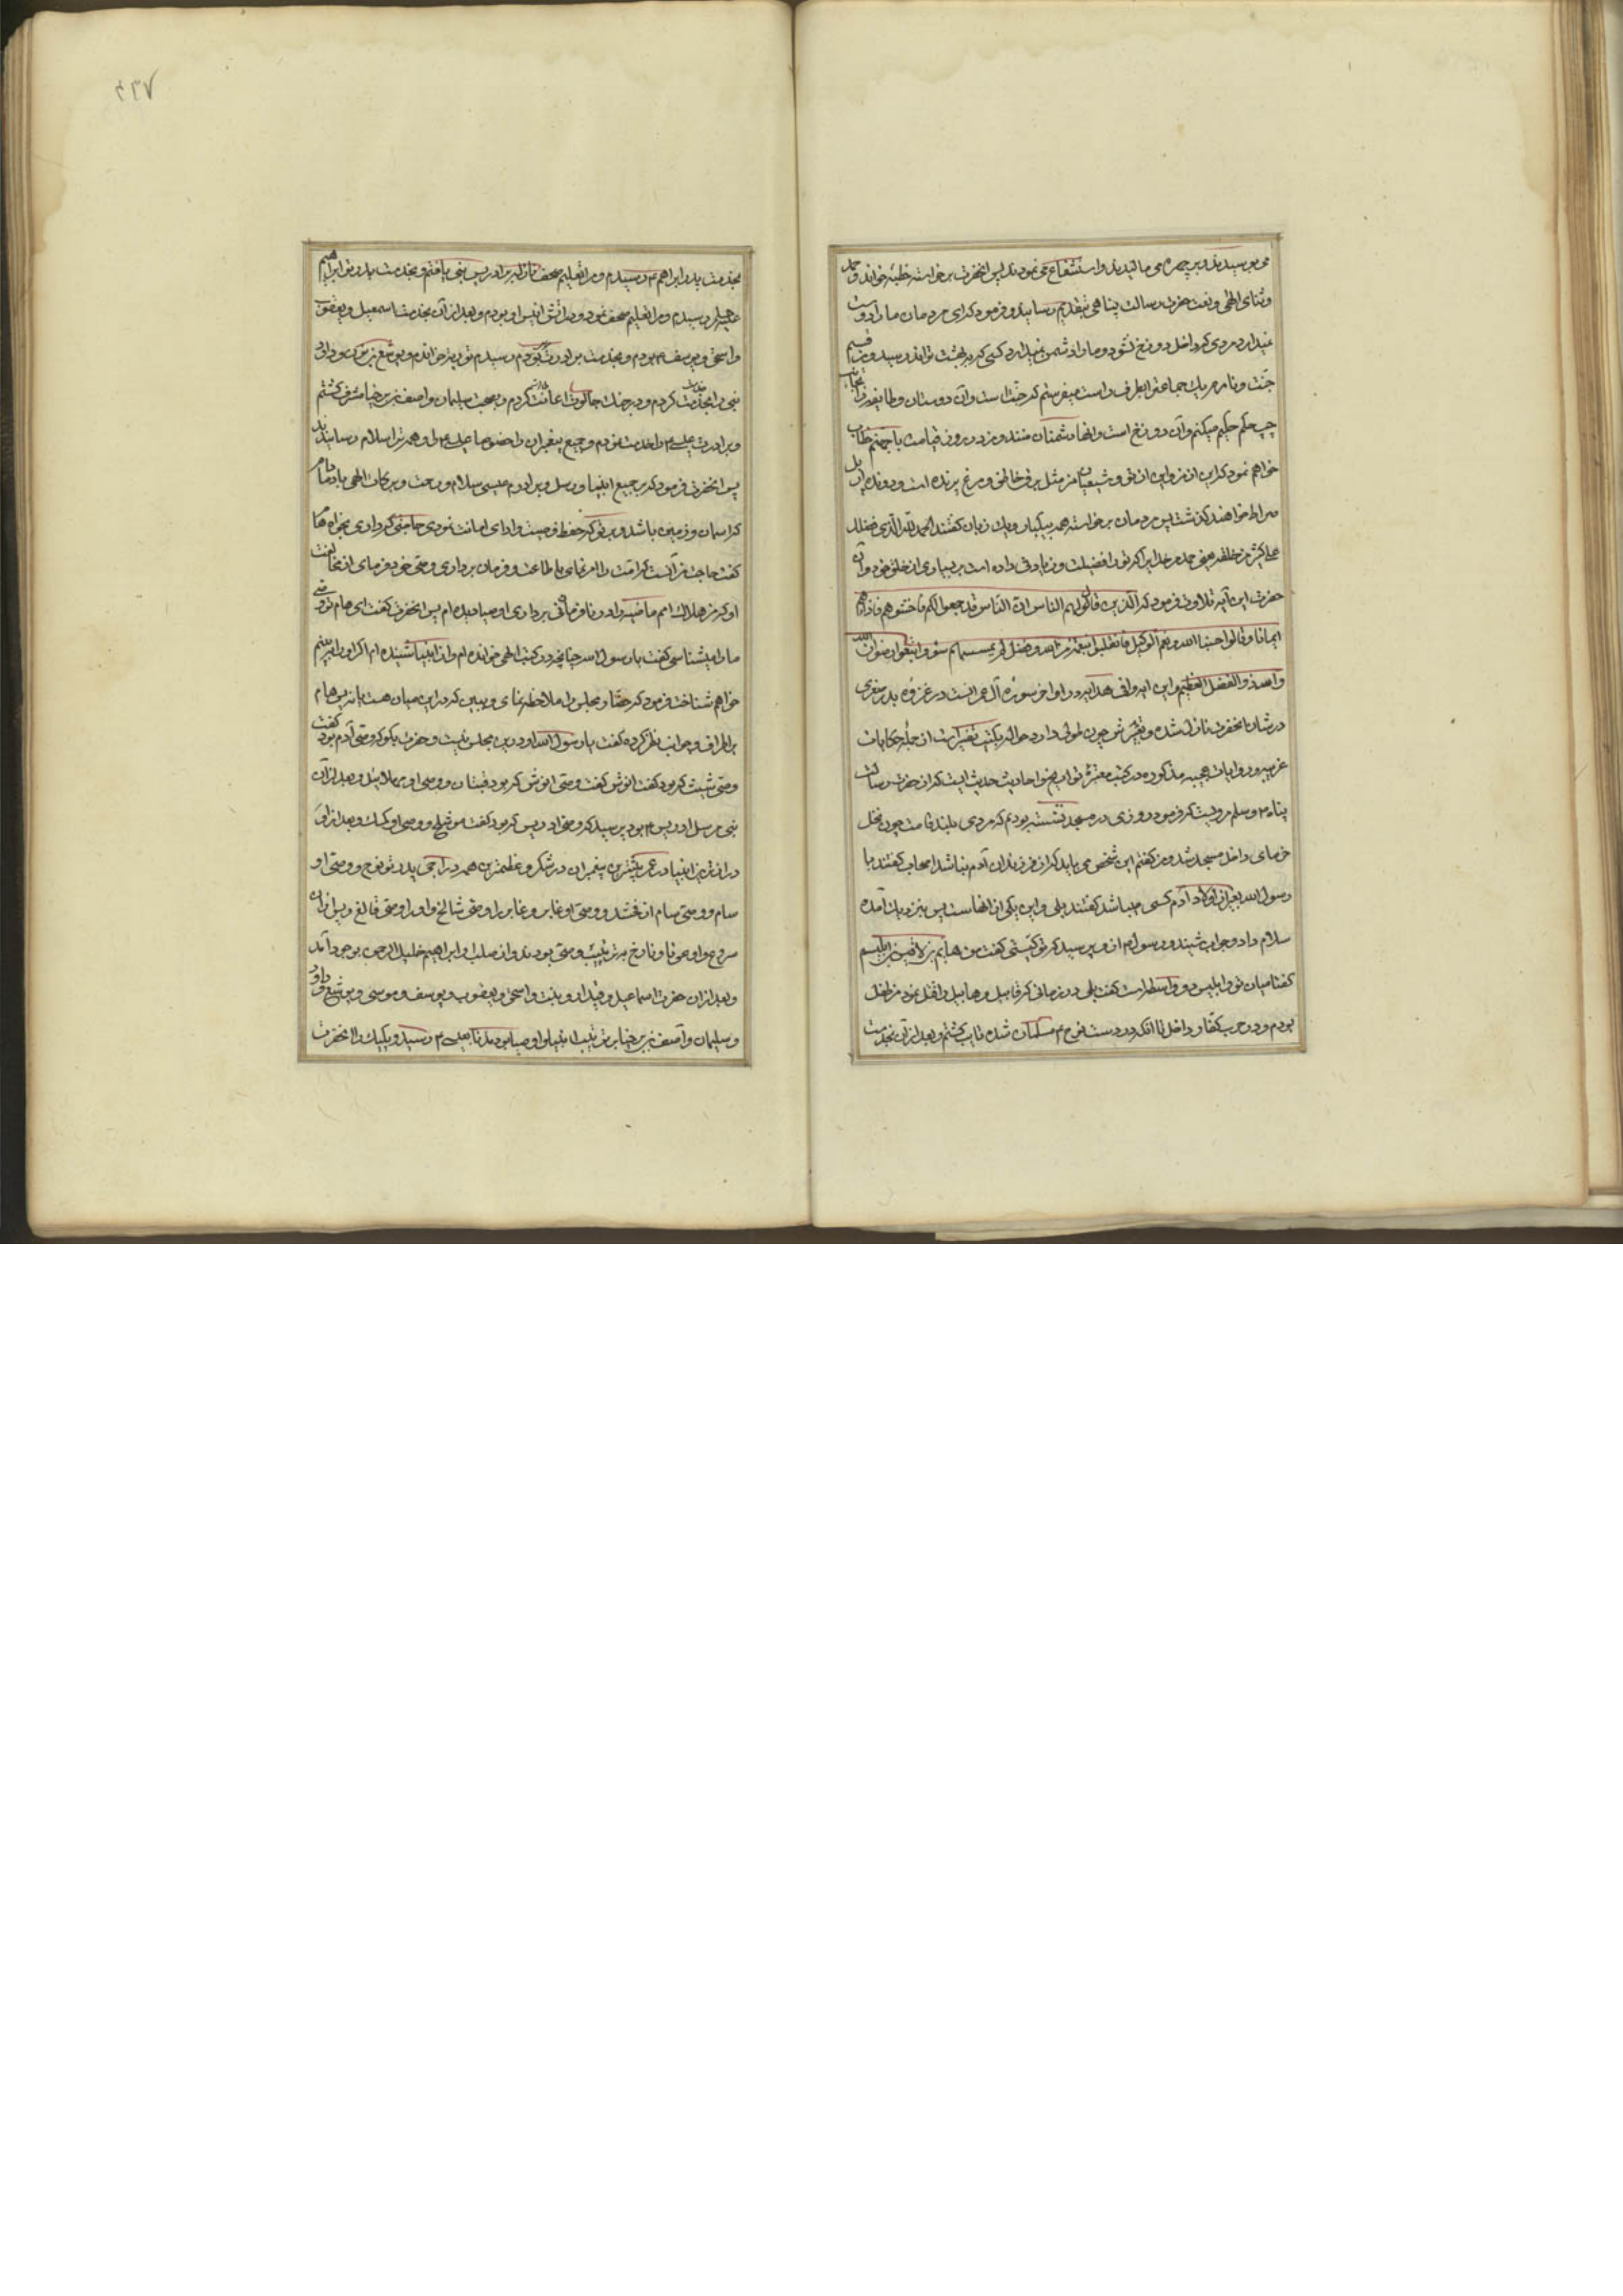 می بوسیدند و بر چهره می مالیدند و استشفاع می نمودند پس آنحضرت برخواسته خطبه خواند و حمد
و ثنای الهی و نعت حضرت رسالت پناهی بتقدیم رسانید و فرمود که ای مردمان ما را دوست
نمیدارد مردی که داخل دوزخ شود و ما را دشمن نمیدارد کسی که ببهشت تواند رسید و من قسیم
جنت و نارم یک جماعة را بطرف راست میفرستم که جنت است و آن دوستان و طایفه را بجانب
چپ حکم میکنم و آن دوزخ است و آنها دشمنان منند و من در روز قیامت با جهنم خطاب
خواهم نمود که این از من و این از تو و شیعیان من مثل برق خاطف و مرغ پرنده است و دونده از پل
صراط خواهند گذشت پس مردمان برخواسته همه بیکبار و یک زبان گفتند الحمد لله الذی فضلک
علی کثیر من خلقه یعنی حمد مر خدایرا که ترا فضیلت و زیادتی داده است بر بسیاری از خلق خود و آن
حضرت این آیه تلاوت فرمود که الذین قال لهم الناس ان الناس قد جمعوا لکم فاخشوهم فزادهم
ایمانا و قالوا حسبنا الله و نعم الوکیل فانقلبوا بنعمة من الله و فضل لم یمسسهم سوء و اتبعوا رضوان الله
والله ذو الفضل العظیم و این آیه وافی هدایه در اواخر سوره آل عمرانست در غزوه بدر صغری
در شان آنحضرت نازل شده و تفسیرش چون طولی دارد حواله بکتب تفسیرست از جمله حکایات
غریبه و روایات عجیبه مذکوره در کتب معتبره
پناه ۴ و سلم مرویست که فرمود روزی در مسجد نشسته بودیم که مردی بلند قامت چون نخل
خرمای داخل مسجد شد و من گفتم این شخص می باید که از فرزندان آدم نباشد اصحاب گفتند یا
رسول الله بغیر از اولاد آدم کسی میباشد گفتند بلی و این یکی از آنهاست پس نزدیک آمده
سلام داد و جواب شنید و رسول م از و پرسید که تو کیستی گفت من هایم بن لاقیس بن ابلیسم
گفتا میان تو و ابلیس دو واسطه است گفت بلی در زمانی که قابیل و هابیل را قتل نمود من طفل
بودم و در حرب کفار داخل تا آنکه در دست نوح ۴ مسلمان شده تایب گشتم و بعد از آن بخدمت
۴۳۷
بخدمت پدر ابراهیم ۴ رسیدم و مرا تعلیم صحف نازله بر ادریس نبی یافتم و بخدمت پدر تو ابراهیم
علیهما رسیدم و مرا تعلیم صحف نمود و در آتش انیس او بودم و بعد از آن بخدمت اسمعیل و یعقوب
و اسحق و یوسف ۴ بودم و بخدمت برادرت موسی رسیدم توریة خواندم و یوشع بن نون و داود
نبی را خدمت کردم و در جنگ جالوت اعانت کردم و بصحبت سلیمان و اصف بن برخیا مشرف گشتم
و برادرت عیسی ۴ را خدمت نمودم و جمیع پیغمبران را خصوصا عیسی ۴ را و همه ترا سلام رسانیدند
پس آنحضرت فرمود که بر جمیع انبیا و رسل و برادرم عیسی سلام و رحمت و برکات الهی باد مادام
که اسمان و زمین باشد و بر تو که حفظ وصیت و ادای امانت نمودی حاجتی که داری بخواه هام
گفت حاجت من آنست که امتت را امر نمای باطاعت و فرمان برداری وصی خود و فرمای از مخالفت
او که من هلاک امم ماضیه را در نافرمانی برداری اوصیا دیده ام پس آنحضرت گفت ای هام تو وصی
ما را میشناسی گفت یا رسول الله چنانچه در کتب الهی خوانده ام و از انبیا شنیده ام اگر او را ببینم
خواهم شناخت فرمود که حضار مجلس را ملاحظه نمای و ببین که در این میان هست یا نه پس هام
بر اطراف و جوانب نظر کرده گفت یا رسول الله او درین مجلس نیست و حضرت بگو که وصی آدم که بود گفت
وصی شیث که بود گفت انوش گفت وصی انوش که بود قینان و وصی او مهلائیل و بعد از آن
نبی مرسل ادریس ۴ بود پرسید که وصی ادریس که بود گفت متوشلخ و وصی او لمک و بعد از او
درازترین انبیا در عمر بیشترین پیغمبران در شکر و عظیمترین همه در اجر پدر تو نوح و وصی او
سام و وصی سام ارفخشد و وصی او غابر و غابر را وصی شالخ و او را وصی قالغ و پس از آن
سروغ و ارغو و ناحور و تارخ بترتیب وصی بودند و از صلب او ابراهیم خلیل الرحمن بوجود آمد
و بعد از آن حضرت اسماعیل و قیدار و نبت و اسحق و یعقوب و یوسف و موسی و یوشع و داود
و سلیمان و آصف بن برخیا بر ترتیب انبیا و اوصیا بودند تا بعیسی ۴ رسید و یکیک را آنحضرت